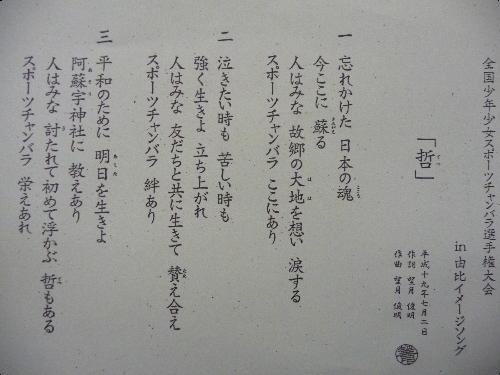 全国少年少女スポーツチャンバラ選手権大会
in 由比イメージソング
「哲」
てつ
平成十九年七月二日
作詞 望月 俊明
作曲 望月 俊明
一 忘れかけた 日本の魂
こころ
今ここに 蘇る
人はみな 故郷の大地を想い 涙する
はは
スポーツチャンバラ ここにあり
二 泣きたい時も 苦しい時も
強く生きよ 立ち上がれ
人はみな 友だちと共に生きて 賛え合え
スポーツチャンバラ 絆あり
三 平和のために 明日を生きよ
あした
阿蘇宇神社に 教えあり
人はみな 討たれて初めて浮かぶ 哲もある
スポーツチャンバラ 栄えあれ